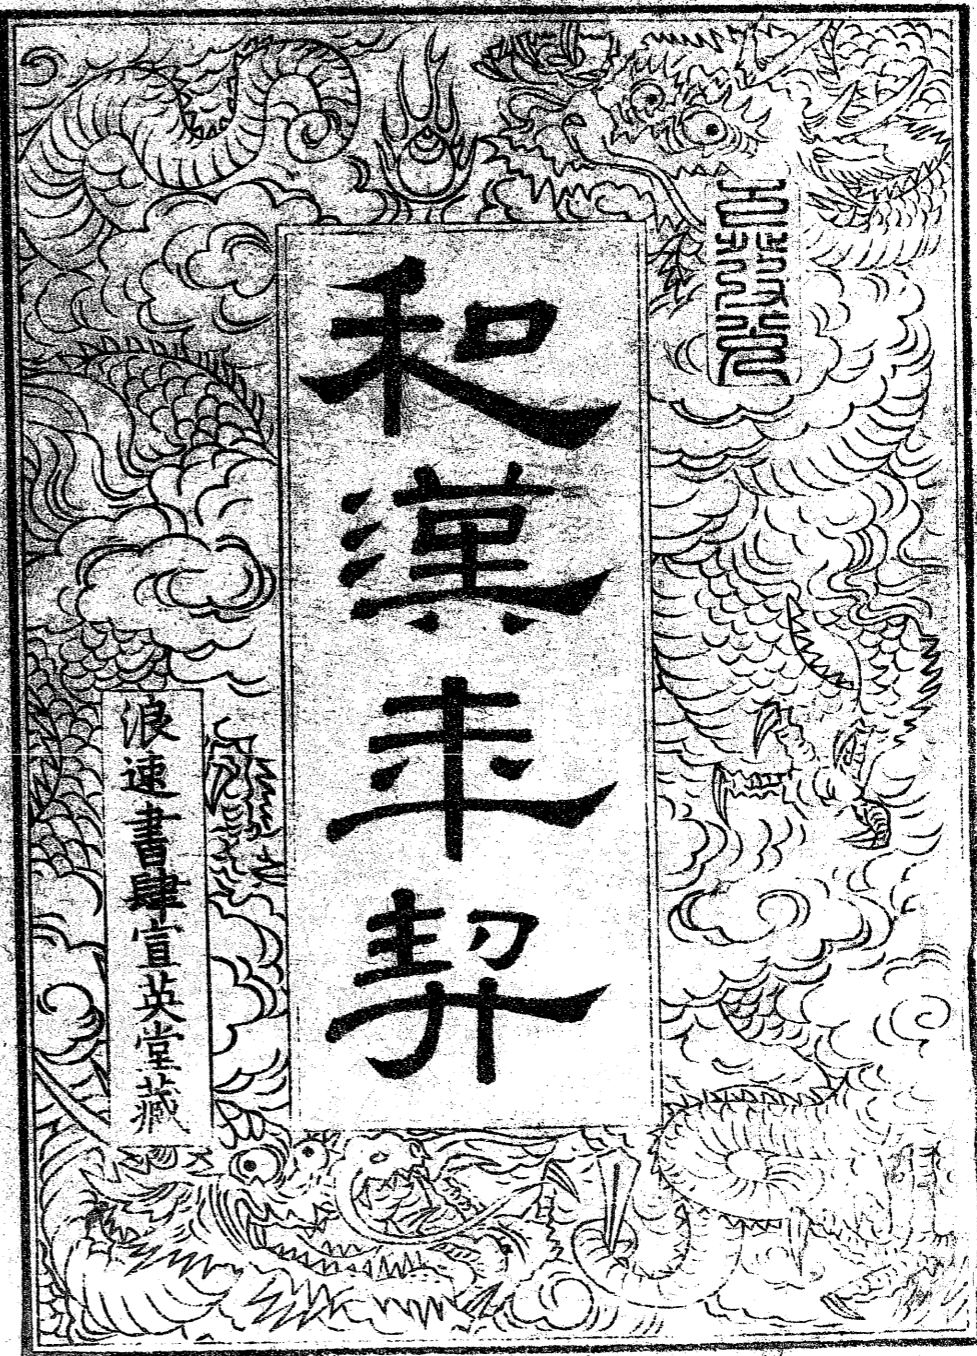 和漢年契
浪速書肆宣英堂藏